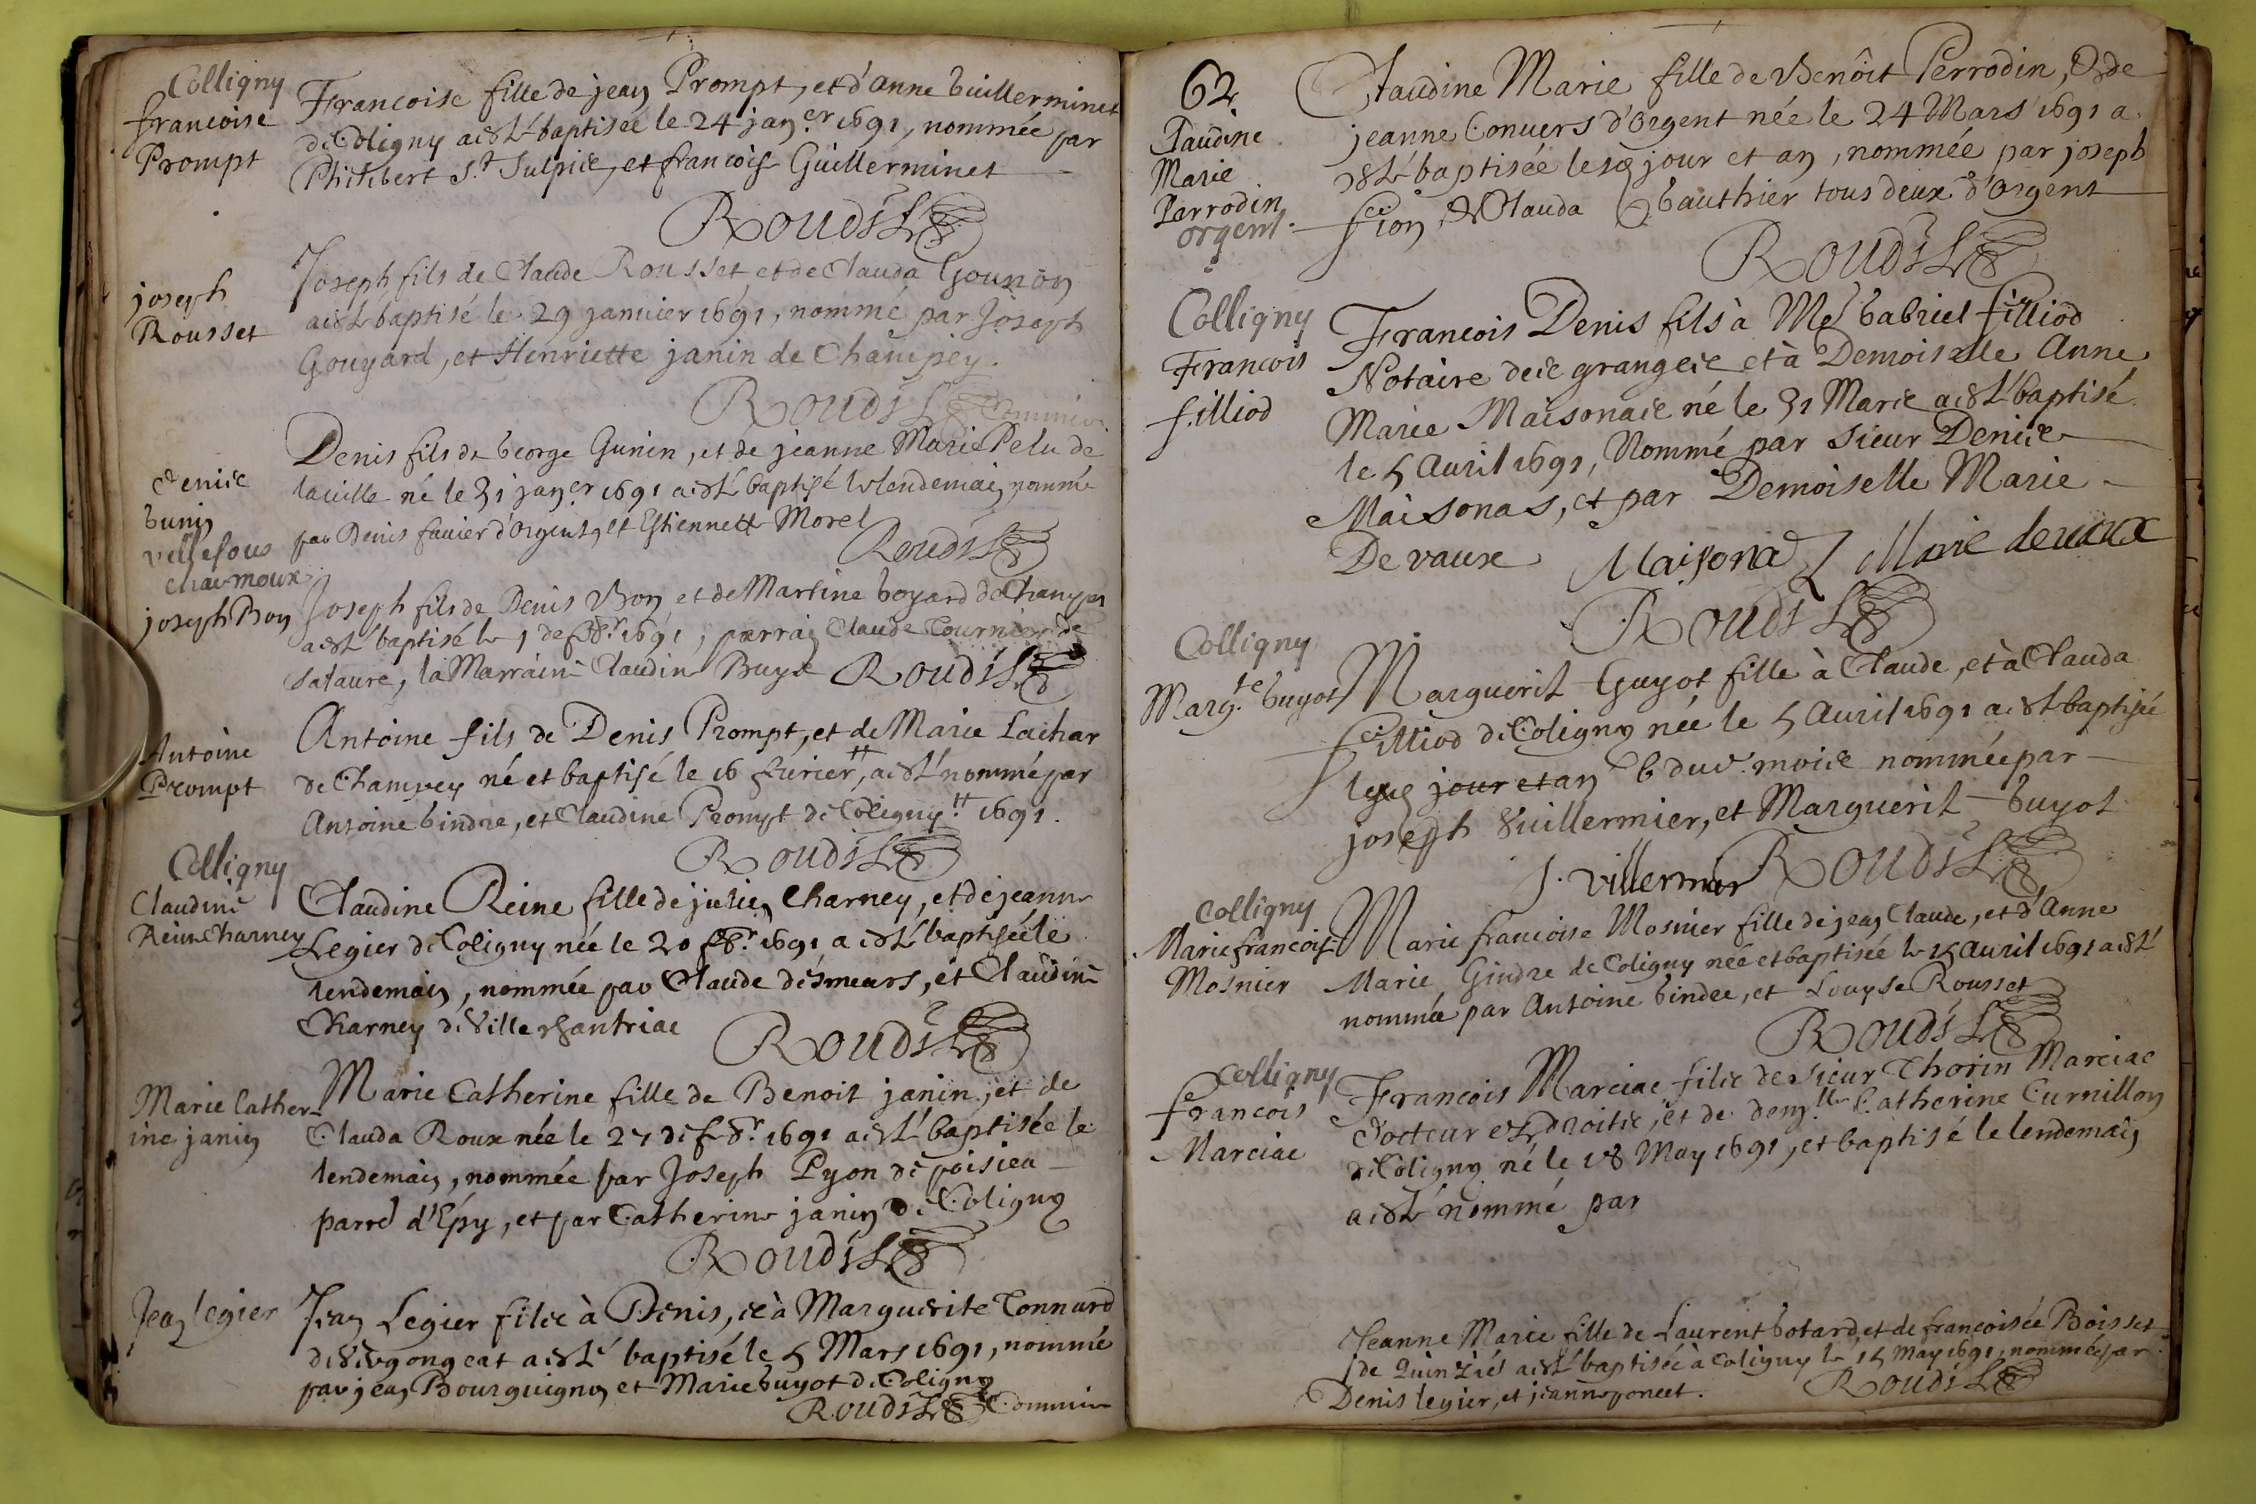 Colligny
francoise
Prompt
Francoise fille de jean Prompt, et d'anne Guillerminet
de Coligny a esté baptisée le 24 jan.er 1691, nommée par
Philibert S.t Sulpice, et francoise Guillerminet
Roudet
joseph
Rousset
Joseph fils de Claude Rousset et de Clauda Gounon
a esté baptisé le 29 janvier 1691, nommé par Joseph
Gouyard, et Henriette janin de Champey.
Roudet Commis
Denise
Gunin
Ville sous
charmoux
Denis fils de George Gunin, et de jeanne Marie Pelu de
laville né le 31 jan.er 1691 a esté baptisé le lendemain nommé
par Denis favier d'orgent, et Estiennette Morel
Roudet
joseph Bon
Joseph fils de Denis Bon et de Martine Goyard de Champey
a esté baptisé le 1 de feb.r 1691, parrain Claude Tournier de
Salaure, la Marraine Claudine Buyd Roudet
Antoine
Prompt
Antoine fils de Denis Prompt, et de Marie Lachar
de Champey né et baptisé le 16 fevrier, a esté nommé par
Antoine Gindre, et Claudine Prompt de Coligny. 1691.
Roudet
Colligny
Claudine
Reine Charney
Claudine Reine fille de julien Charney, et de jeanne
Legier de Coligny née le 20 feb.r 1691 a esté baptisée le
lendemain, nommée par Claude desmeurs, et Claudine
Charney de Villechantria
Roudet
Marie Cather-
ine janin
Marie Catherine fille de Benoit janin, et de
Clauda Roux née le 27 de feb.r 1691 a esté baptisée le
lendemain, nommée par Joseph Pyon de poisieu
parr.d d'Epy, et par Catherine janin de Coligny
Roudet
Jean legier
Jean Legier filse à Denis, et à Marguerite Tonnard
de Vergongeat a esté baptisé le 5 Mars 1691, nommé
par jean Bourguignon et Marie Guyot de Coligny
Roudet Commis
62.
Claudine
Marie
Perrodin
orgent.
Claudine Marie fille de Benôit Perrodin, et de
jeanne Convers d'orgent née le 24 Mars 1691 a
esté baptisée lesd jour et an, nommée par joseph
fion, et Clauda Gauthier tous deux d'orgent
Roudet
Colligny
Francois
filliod
Francois Denis fils à Me Gabriel filliod
Notaire dese grangese et à Demoiselle Anne
Marie Maisonase né le 31 Marse a esté baptisé
le 5 Avril 1691, Nommé par Sieur Denise
Maisonas, et par Demoiselle Marie
De vaux Maisonas Marie devaux
Roudet
Colligny
Marg.te Guyot
Marguerite Guyot fille à Claude, et à Clauda
filliod de Coligny née le 5 Avril 1691 a esté baptisée
lesd jour et an 6 dud. moise nommée par
joseph Vuillermier, et Marguerite Guyot
J. Villermier Roudet
Colligny
Marie francoise
Mosnier
Marie francoise Mosnier fille de jean Claude, et d'Anne
Marie Gindre de Coligny née et baptisée le 15 Avril 1691 a esté
nommée par Antoine Gindre, et Louyse Rousset
Roudet
Colligny
francois
Marciac
Francois Marciac filse de Sieur Thorin Marciac
docteur ez droitse, et de dem.lle Catherine Curnillon
de Coligny né le 18 May 1691, et baptisé le lendemain
a esté nommé par
Jeanne Marie fille de Laurent Gotard, et de francoise Boisset
de Quinziés a esté baptisée à Coligny le 15 May 1691, nommée par
Denis legier, et jeanne poncet. Roudet